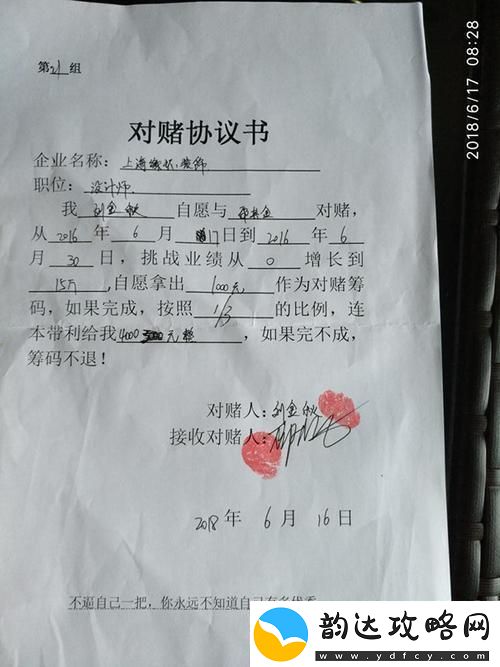 第21组
2018/6/17 08:28
对赌协议书
企业名称：上海 装饰
职位：设计师
我刘金 自愿与 对赌，
从2016年6月17日到2016年6
月30日，挑战业绩从0增长到
15万，自愿拿出1000元作为对赌筹
码，如果完成，按照1/3的比例，连
本带利给我4000 元整，如果完不成，
筹码不退！
对赌人：刘金
接收对赌人：
2018年6月16日
不逼自己一把，你永远不知道自己有多优秀
韵达攻略网
www.ydfcy.com